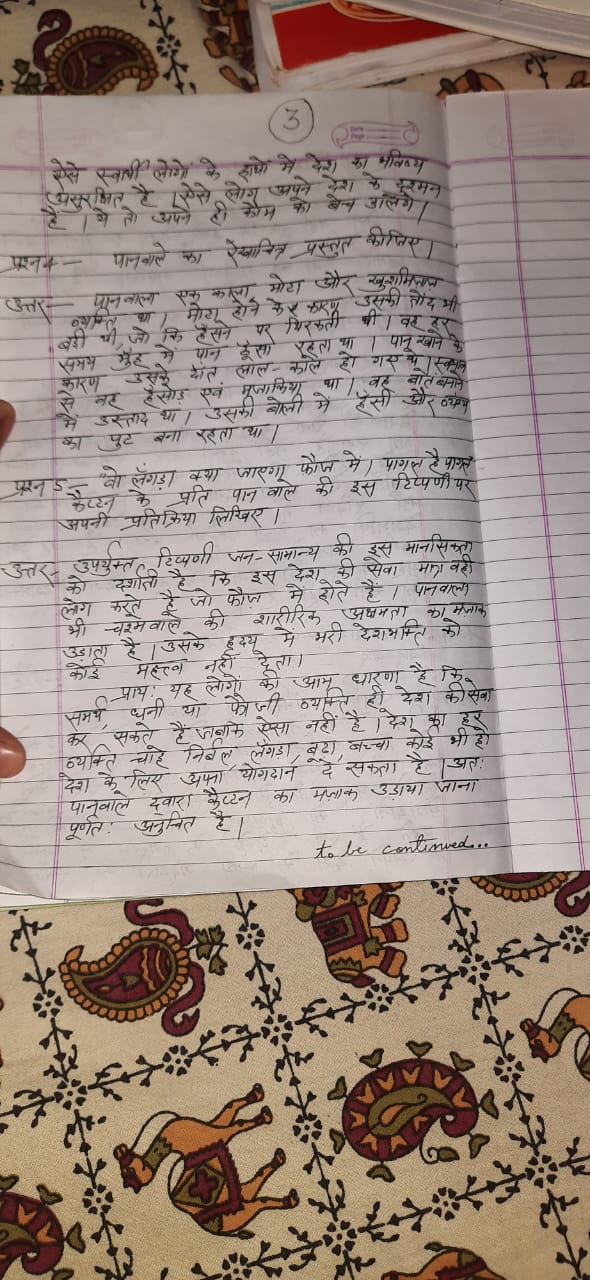 3
Date
Page
ऐसे स्वार्थी लोगों के हाथों में देश का भविष्य
असुरक्षित है। ऐसे लोग अपने देश के दुश्मन
हैं। ये तो अपने ही कौम को बेच डालेंगे।
प्रश्न 4- पानवाले का रेखाचित्र प्रस्तुत कीजिए।
उत्तर- पानवाला एक काला, मोटा और खुशमिज़ाज
व्यक्ति था। मोटा होने के कारण उसकी तोंद भी
बड़ी थी, जो कि हँसने पर थिरकती थी। वह हर
समय मुँह में पान ठूँसा रहता था। पान खाने के
कारण उसके दांत लाल-काले हो गए थे। स्वभाव
से वह हँसोड़ एवं मजाकिया था। वह बातें बनाने
में उस्ताद था। उसकी बोली में हँसी और व्यंग्य
का पुट बना रहता था।
प्रश्न 5- वो लँगड़ा क्या जाएगा फौज में। पागल है पागल
कैप्टन के प्रति पानवाले की इस टिप्पणी पर
अपनी प्रतिक्रिया लिखिए।
उत्तर- उपर्युक्त टिप्पणी जन-सामान्य की इस मानसिकता
को दर्शाती है कि इस देश की सेवा मात्र वही
लोग करते हैं जो फौज में होते हैं। पानवाला
भी चश्मेवाले की शारीरिक अक्षमता का मज़ाक
उड़ाता है। उसके हृदय में भरी देशभक्ति को
कोई महत्त्व नहीं देता।
प्राय: यह लोगों की आम धारणा है कि
समर्थ, धनी या फौजी व्यक्ति ही देश की सेवा
कर सकते हैं जबकि ऐसा नहीं है। देश का हर
व्यक्ति चाहे निर्बल, लँगड़ा, बूढ़ा, बच्चा कोई भी हो
देश के लिए अपना योगदान दे सकता है। अत:
पानवाले द्वारा कैप्टन का मज़ाक उड़ाया जाना
पूर्णत: अनुचित है।
to be continued...